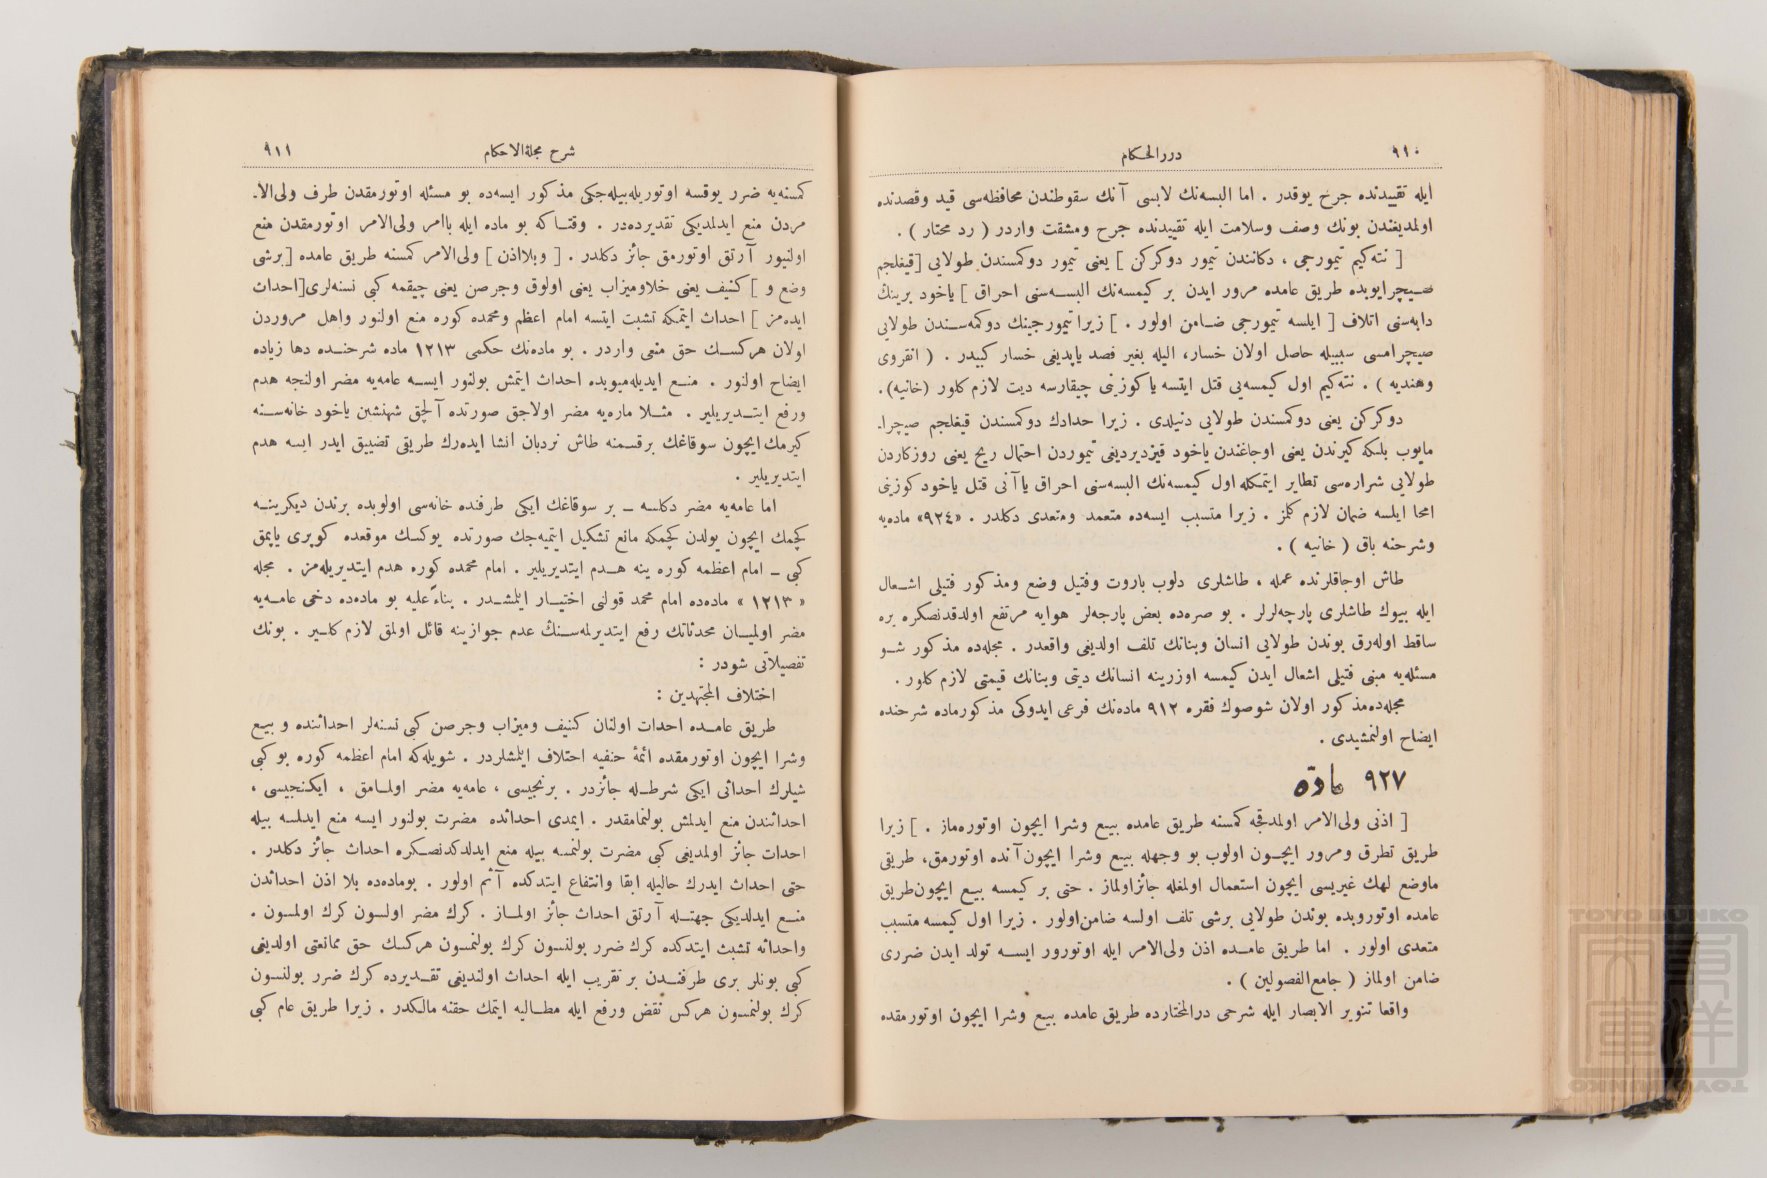 ٩١٠
دررالحكام
ايله تقييدنده جرح يوقدر . اما البسه‌نك لابسى آنك سقوطندن محافظه‌سى قيد وقصدنده
اولمديغندن بونك وصف وسلامت ايله تقييدنده جرح ومشقت واردر ( رد محتار ) .
[ نته‌كيم تيمورجى ، دكانندن تيمور دوكركن ] يعنى تيمور دوكمسندن طولايى [ قيغلجم
صيچرايوبده طريق عامده مرور ايدن بر كيمسه‌نك البسه‌سنى احراق ] ياخود برينك
دابه‌سنى اتلاف [ ايلسه تيمورجى ضامن اولور . ] زيرا تيمورجينك دوكمه‌سندن طولايى
صيچرامسى سببيله حاصل اولان خسار، اليله بغير قصد ياپديغى خسار كبيدر . ( انقروى
وهنديه ) . نته‌كيم اول كيمسه‌يى قتل ايتسه يا كوزينى چيقارسه ديت لازم كلور (خانيه).
دوكركن يعنى دوكمسندن طولايى دنيلدى . زيرا حدادك دوكمسندن قيغلجم صيچرا-
مايوب بلكه كيرندن يعنى اوجاغندن ياخود قيزديرديغى تيموردن احتمال ريح يعنى روزكاردن
طولايى شراره‌سى تطاير ايتمكله اول كيمسه‌نك البسه‌سنى احراق يا آنى قتل ياخود كوزينى
امحا ايلسه ضمان لازم كلمز . زيرا متسبب ايسه‌ده متعمد ومتعدى دكلدر . «٩٢٤» ماده‌يه
وشرحنه باق ( خانيه ) .
طاش اوجاقلرنده عمله ، طاشلرى دلوب باروت وفتيل وضع ومذكور فتيلى اشعال
ايله بيوك طاشلرى پارچه‌لرلر . بو صره‌ده بعض پارچه‌لر هوايه مرتفع اولدقدنصكره يره
ساقط اوله‌رق بوندن طولايى انسان وبنانك تلف اولديغى واقعدر . مجله‌ده مذكور شو
مسئله‌يه مبنى فتيلى اشعال ايدن كيمسه اوزرينه انسانك ديتى وبنانك قيمتى لازم كلور .
مجله‌ده‌مذكور اولان شوصوك فقره ٩١٢ ماده‌نك فرعى ايدوكى مذكورماده شرحنده
ايضاح اولنمشيدى .
٩٢٧ مادّه
[ اذنى ولى‌الامر اولمدقجه كمسنه طريق عامده بيع وشرا ايچون اوتوره‌ماز . ] زيرا
طريق تطرق ومرور ايچون اولوب بو وجهله بيع وشرا ايچون آنده اوتورمق، طريقى
ماوضع لهك غيريسى ايچون استعمال اولمغله جائزاولماز . حتى بر كيمسه بيع ايچون‌طريق
عامده اوتوروبده بوندن طولايى برشى تلف اولسه ضامن‌اولور . زيرا اول كيمسه متسبب
متعدى اولور . اما طريق عامده اذن ولى‌الامر ايله اوتورور ايسه تولد ايدن ضررى
ضامن اولماز ( جامع‌الفصولين ) .
واقعا تنوير الابصار ايله شرحى درالمختارده طريق عامده بيع وشرا ايچون اوتورمقده
شرح مجلة‌الاحكام
٩١١
كمسنه‌يه ضرر يوقسه اوتوريله‌بيله‌جكى مذكور ايسه‌ده بو مسئله اوتورمقدن طرف ولى‌الا-
مردن منع ايدلمديكى تقديرده‌در . وقتاكه بو ماده ايله باامر ولى‌الامر اوتورمقدن منع
اولنيور آرتق اوتورمق جائز دكلدر . [ وبلااذن ] ولى‌الامر كمسنه طريق عامده [ برشى
وضع و ] كنيف يعنى خلاوميزاب يعنى اولوق وجرصن يعنى چيقمه كبى نسنه‌لرى[احداث
ايده‌مز ] احداث ايتمكه تشبث ايتسه امام اعظم ومحمده كوره منع اولنور واهل مروردن
اولان هركسك حق منعى واردر . بو ماده‌نك حكمى ١٢١٣ ماده شرحنده دها زياده
ايضاح اولنور . منع ايديله‌ميوبده احداث ايتمش بولنور ايسه عامه‌يه مضر اولنجه هدم
ورفع ايتديريلير . مثلا ماره‌يه مضر اولاجق صورتده آلچق شهنشين ياخود خانه‌سنه
كيرمك ايچون سوقاغك برقسمنه طاش نردبان انشا ايده‌رك طريقى تضييق ايدر ايسه هدم
ايتديريلير .
اما عامه‌يه مضر دكلسه ــ بر سوقاغك ايكى طرفنده خانه‌سى اولوبده برندن ديكرينه
كچمك ايچون يولدن كچمكه مانع تشكيل ايتميه‌جك صورتده يوكسك موقعده كوپرى ياپمق
كبى ــ امام اعظمه كوره ينه هدم ايتديريلير . امام محمده كوره هدم ايتديريله‌مز . مجله
« ١٢١٣ » ماده‌ده امام محمد قولنى اختيار ايلمشدر . بناءً عليه بو ماده‌ده دخى عامه‌يه
مضر اولميان محدثاتك رفع ايتديرلمه‌سنڭ عدم جوازينه قائل اولمق لازم كلير . بونك
تفصيلاتى شودر :
اختلاف المجتهدين :
طريق عامده احداث اولنان كنيف وميزاب وجرصن كبى نسنه‌لر احداثنده و بيع
وشرا ايچون اوتورمقده ائمۀ حنفيه اختلاف ايلمشلردر . شويله‌كه امام اعظمه كوره بو كبى
شيلرك احداثى ايكى شرطله جائزدر . برنجيسى ، عامه‌يه مضر اولمامق ، ايكنجيسى ،
احداثندن منع ايدلمش بولنمامقدر . ايمدى احداثده مضرت بولنور ايسه منع ايدلسه بيله
احداث جائز اولمديغى كبى مضرت بولنمسه بيله منع ايدلدكدنصكره احداث جائز دكلدر .
حتى احداث ايدرك حاليله ابقا وانتفاع ايتدكده آثم اولور . بوماده‌ده بلا اذن احداثدن
منع ايدلديكى جهتله آرتق احداث جائز اولماز . كرك مضر اولسون كرك اولمسون .
واحداثه تشبث ايتدكده كرك ضرر بولنسون كرك بولنمسون هركسك حق ممانعتى اولديغى
كبى بونلر برى طرفندن بر تقريب ايله احداث اولنديغى تقديرده كرك ضرر بولنسون
كرك بولنمسون هركس نقض ورفع ايله مطالبه ايتمك حقنه مالكدر . زيرا طريق عام كبى
TOYO BUNKO
東洋文庫
TOYO BUNKO